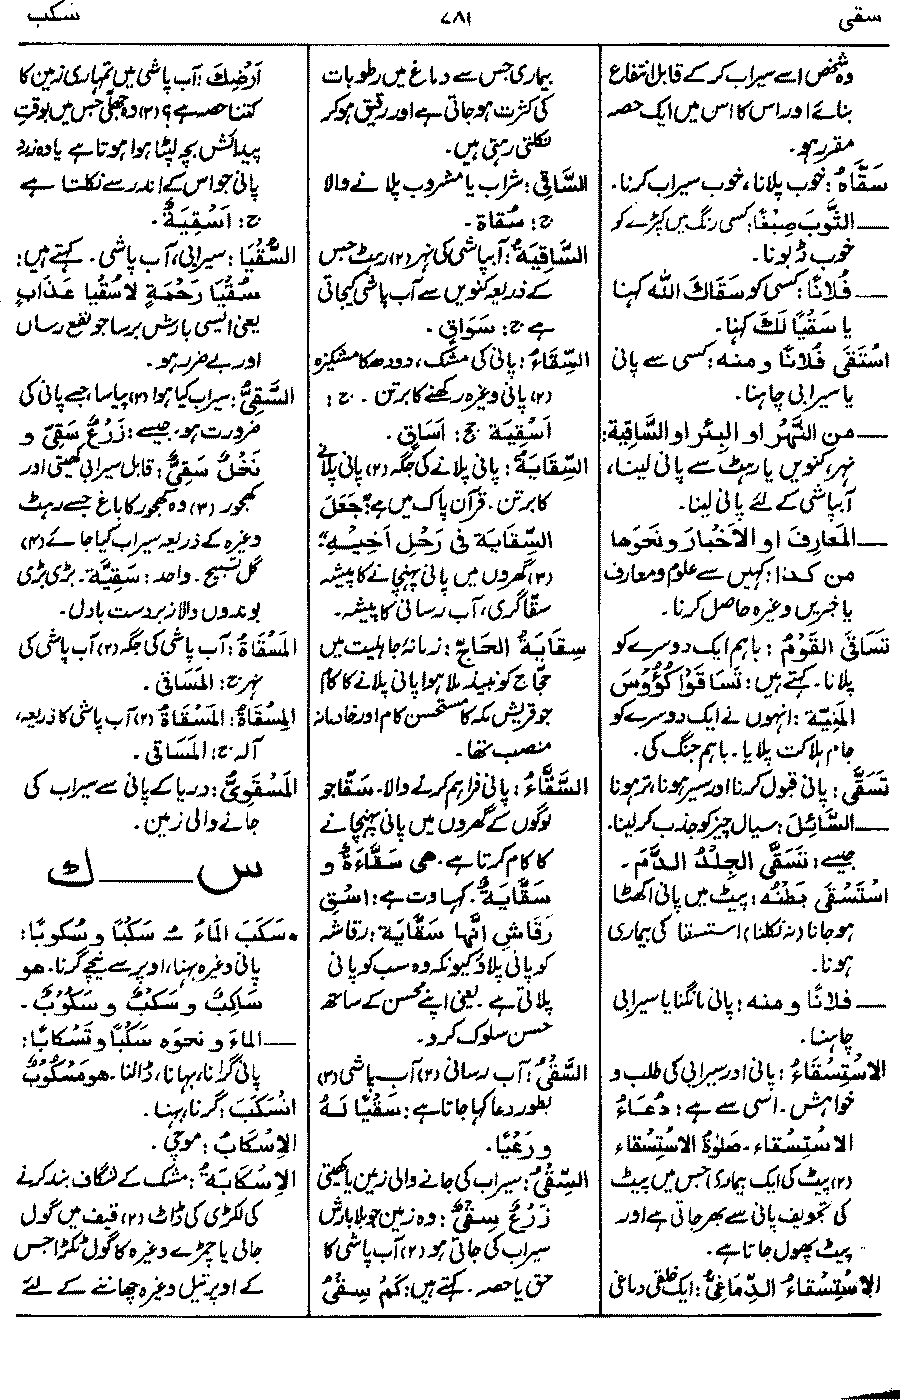 سقی
۷۸۱
سکب
وہ شخص اسے سیراب کر کے قابل انتفاع
بنائے اور اس کا اس میں ایک حصہ
مقرر ہو۔
سَقَّاہُ: خوب پلانا، خوب سیراب کرنا۔
— الثَّوبَ صِبْغًا: کسی رنگ میں کپڑے کو
خوب ڈبونا۔
— فُلانًا: کسی کو سَقَاكَ الله کہنا
یا سَقْیًا لَكَ کہنا۔
اسْتَقَى فُلانًا و منه: کسی سے پانی
یا سیرابی چاہنا۔
— من النَّهْر او البِئر او السَّاقِية:
نہر، کنویں یا رہٹ سے پانی لینا،
آبپاشی کے لئے پانی لینا۔
— المَعارِفَ او الاَخْبارَ و نَحْوَها
من کذا: کہیں سے علوم و معارف
یا خبریں وغیرہ حاصل کرنا۔
تَسَاقَى القَوْمُ: باہم ایک دوسرے کو
پلانا۔ کہتے ہیں: تَسَاقَوْا كُؤُوْسَ
المَنِيَّة: انہوں نے ایک دوسرے کو
جام ہلاکت پلایا۔ باہم جنگ کی۔
تَسَقَّى: پانی قبول کرنا اور سیر ہونا، تر ہونا
— السَّائِلَ: سیال چیز کو جذب کر لینا۔
جیسے: تَسَقَّى الجِلْدُ الدَّمَ۔
اسْتَسْقَى بَطْنُه: پیٹ میں پانی اکھٹا
ہو جانا (نہ نکلنا) استسقا کی بیماری
ہونا۔
— فلانًا و منه: پانی مانگنا یا سیرابی
چاہنا۔
الاِسْتِسْقاءُ: پانی اور سیرابی کی طلب و
خواہش۔ اسی سے ہے: دُعَاءُ
الاِسْتِسْقاء۔ صَلوٰةُ الاِسْتِسْقاء
(۲) پیٹ کی ایک بیماری جس میں پیٹ
کی تجویف پانی سے بھر جاتی ہے اور
پیٹ پھول جاتا ہے۔
الاِسْتِسْقاءُ الدِّماغِیُّ: ایک خلقی دماغی
بیماری جس سے دماغ میں رطوبات
کی کثرت ہو جاتی ہے اور رقیق ہو کر
نکلتی رہتی ہیں۔
السَّاقِی: شراب یا مشروب پلانے والا
ج: سُقاة۔
السَّاقِيَةُ: آبپاشی کی نہر (۲) رہٹ جس
کے ذریعہ کنویں سے آب پاشی کیجاتی
ہے ج: سَوَاقٍ۔
السِّقَاءُ: پانی کی مشک، دودھ کا مشکیزہ
(۲) پانی وغیرہ رکھنے کا برتن۔ ج:
اَسْقِیَة جج: اَسَاقٍ۔
السِّقَایَةُ: پانی پلانے کی جگہ (۲) پانی پلانے
کا برتن۔ قرآن پاک میں ہے: "جَعَلَ
السِّقایَة فی رَحْلِ اَخِیْه"
(۳) گھروں میں پانی پہنچانے کا پیشہ
سقا گری، آب رسانی کا پیشہ۔
سِقایَةُ الحَاجِّ: زمانۂ جاہلیت میں
حجاج کو نبیذ ملا ہوا پانی پلانے کا کام
جو قریش مکہ کا مستحسن کام اور خادمانہ
منصب تھا۔
السَّقَّاءُ: پانی فراہم کرنے والا۔ سقا جو
لوگوں کے گھروں میں پانی پہنچانے
کا کام کرتا ہے۔ هی سَقَّاءَةٌ و
سَقَّایَةٌ۔ کہاوت ہے: اسْقِ
رَقَاشِ اِنَّها سَقَّایَة: رقاشہ
کو پانی پلاؤ کیونکہ وہ سب کو پانی
پلاتی ہے۔ یعنی اپنے محسن کے ساتھ
حسن سلوک کرو۔
السَّقْیُ: آب رسانی (۲) آب پاشی (۳)
بطور دعا کہا جاتا ہے: سَقْیًا لَهُ
و رَعْیًا۔
السِّقْیُ: سیراب کی جانے والی زمین یا کھیتی
زَرْعٌ سِقْیٌ: وہ زمین جو بلا بارش
سیراب کی جاتی ہو (۲) آب پاشی کا
حق یا حصہ۔ کہتے ہیں: كَمْ سِقْیُ
اَرْضِكَ: آب پاشی میں تمہاری زمین کا
کتنا حصہ ہے؟ (۳) وہ جھلی جس میں بوقتِ
پیدائش بچہ لپٹا ہوا ہوتا ہے یا وہ زرد
پانی جو اس کے اندر سے نکلتا ہے
ج: اَسْقِیَةٌ۔
السُّقْیَا: سیرابی، آب پاشی۔ کہتے ہیں:
سُقْیَا رَحْمَةٍ لا سُقْیا عَذَابٍ
یعنی ایسی بارش برسا جو نفع رساں
اور بے ضرر ہو۔
السَّقِیُّ: سیراب کیا ہوا (۲) پیاسا، جسے پانی کی
ضرورت ہو۔ جیسے: زَرْعٌ سَقِیٌّ و
نَخْلٌ سَقِیٌّ: قابل سیرابی کھیتی اور
کھجور (۳) وہ کھجور کا باغ جسے رہٹ
وغیرہ کے ذریعہ سیراب کیا جائے (۴)
گل تسبیح۔ واحد: سَقِیَّة۔ بڑی بڑی
بوندوں والا زبردست بادل۔
المَسْقَاةُ: آب پاشی کی جگہ (۲) آب پاشی کی
نہر ج: المَسَاقی۔
المِسْقَاةُ: المَسْقَاةُ (۲) آب پاشی کا ذریعہ،
آلہ ج: المَسَاقی۔
المَسْقَوِیُّ: دریا کے پانی سے سیراب کی
جانے والی زمین۔
س — ك
• سَکَبَ المَاءُ ـُ سَکْبًا و سُکوبًا:
پانی وغیرہ بہنا، اوپر سے نیچے گرنا۔ هو
سَاكِبٌ و سَكْبٌ و سَكُوْبٌ۔
— الماءَ و نحوَہ سَکْبًا و تَسْکابًا:
پانی گرانا، بہانا، ڈالنا۔ هو مَسْكُوْبٌ
انْسَکَبَ: گرنا، بہنا۔
الاِسْکَابُ: موچی۔
الاِسْکابَةُ: مشک کے شگاف بند کرنے
کی لکڑی کی ڈاٹ (۲) قیف میں گول
جالی یا چمڑے وغیرہ کا گول ٹکڑا جس
کے اوپر تیل وغیرہ چھاننے کے لئے